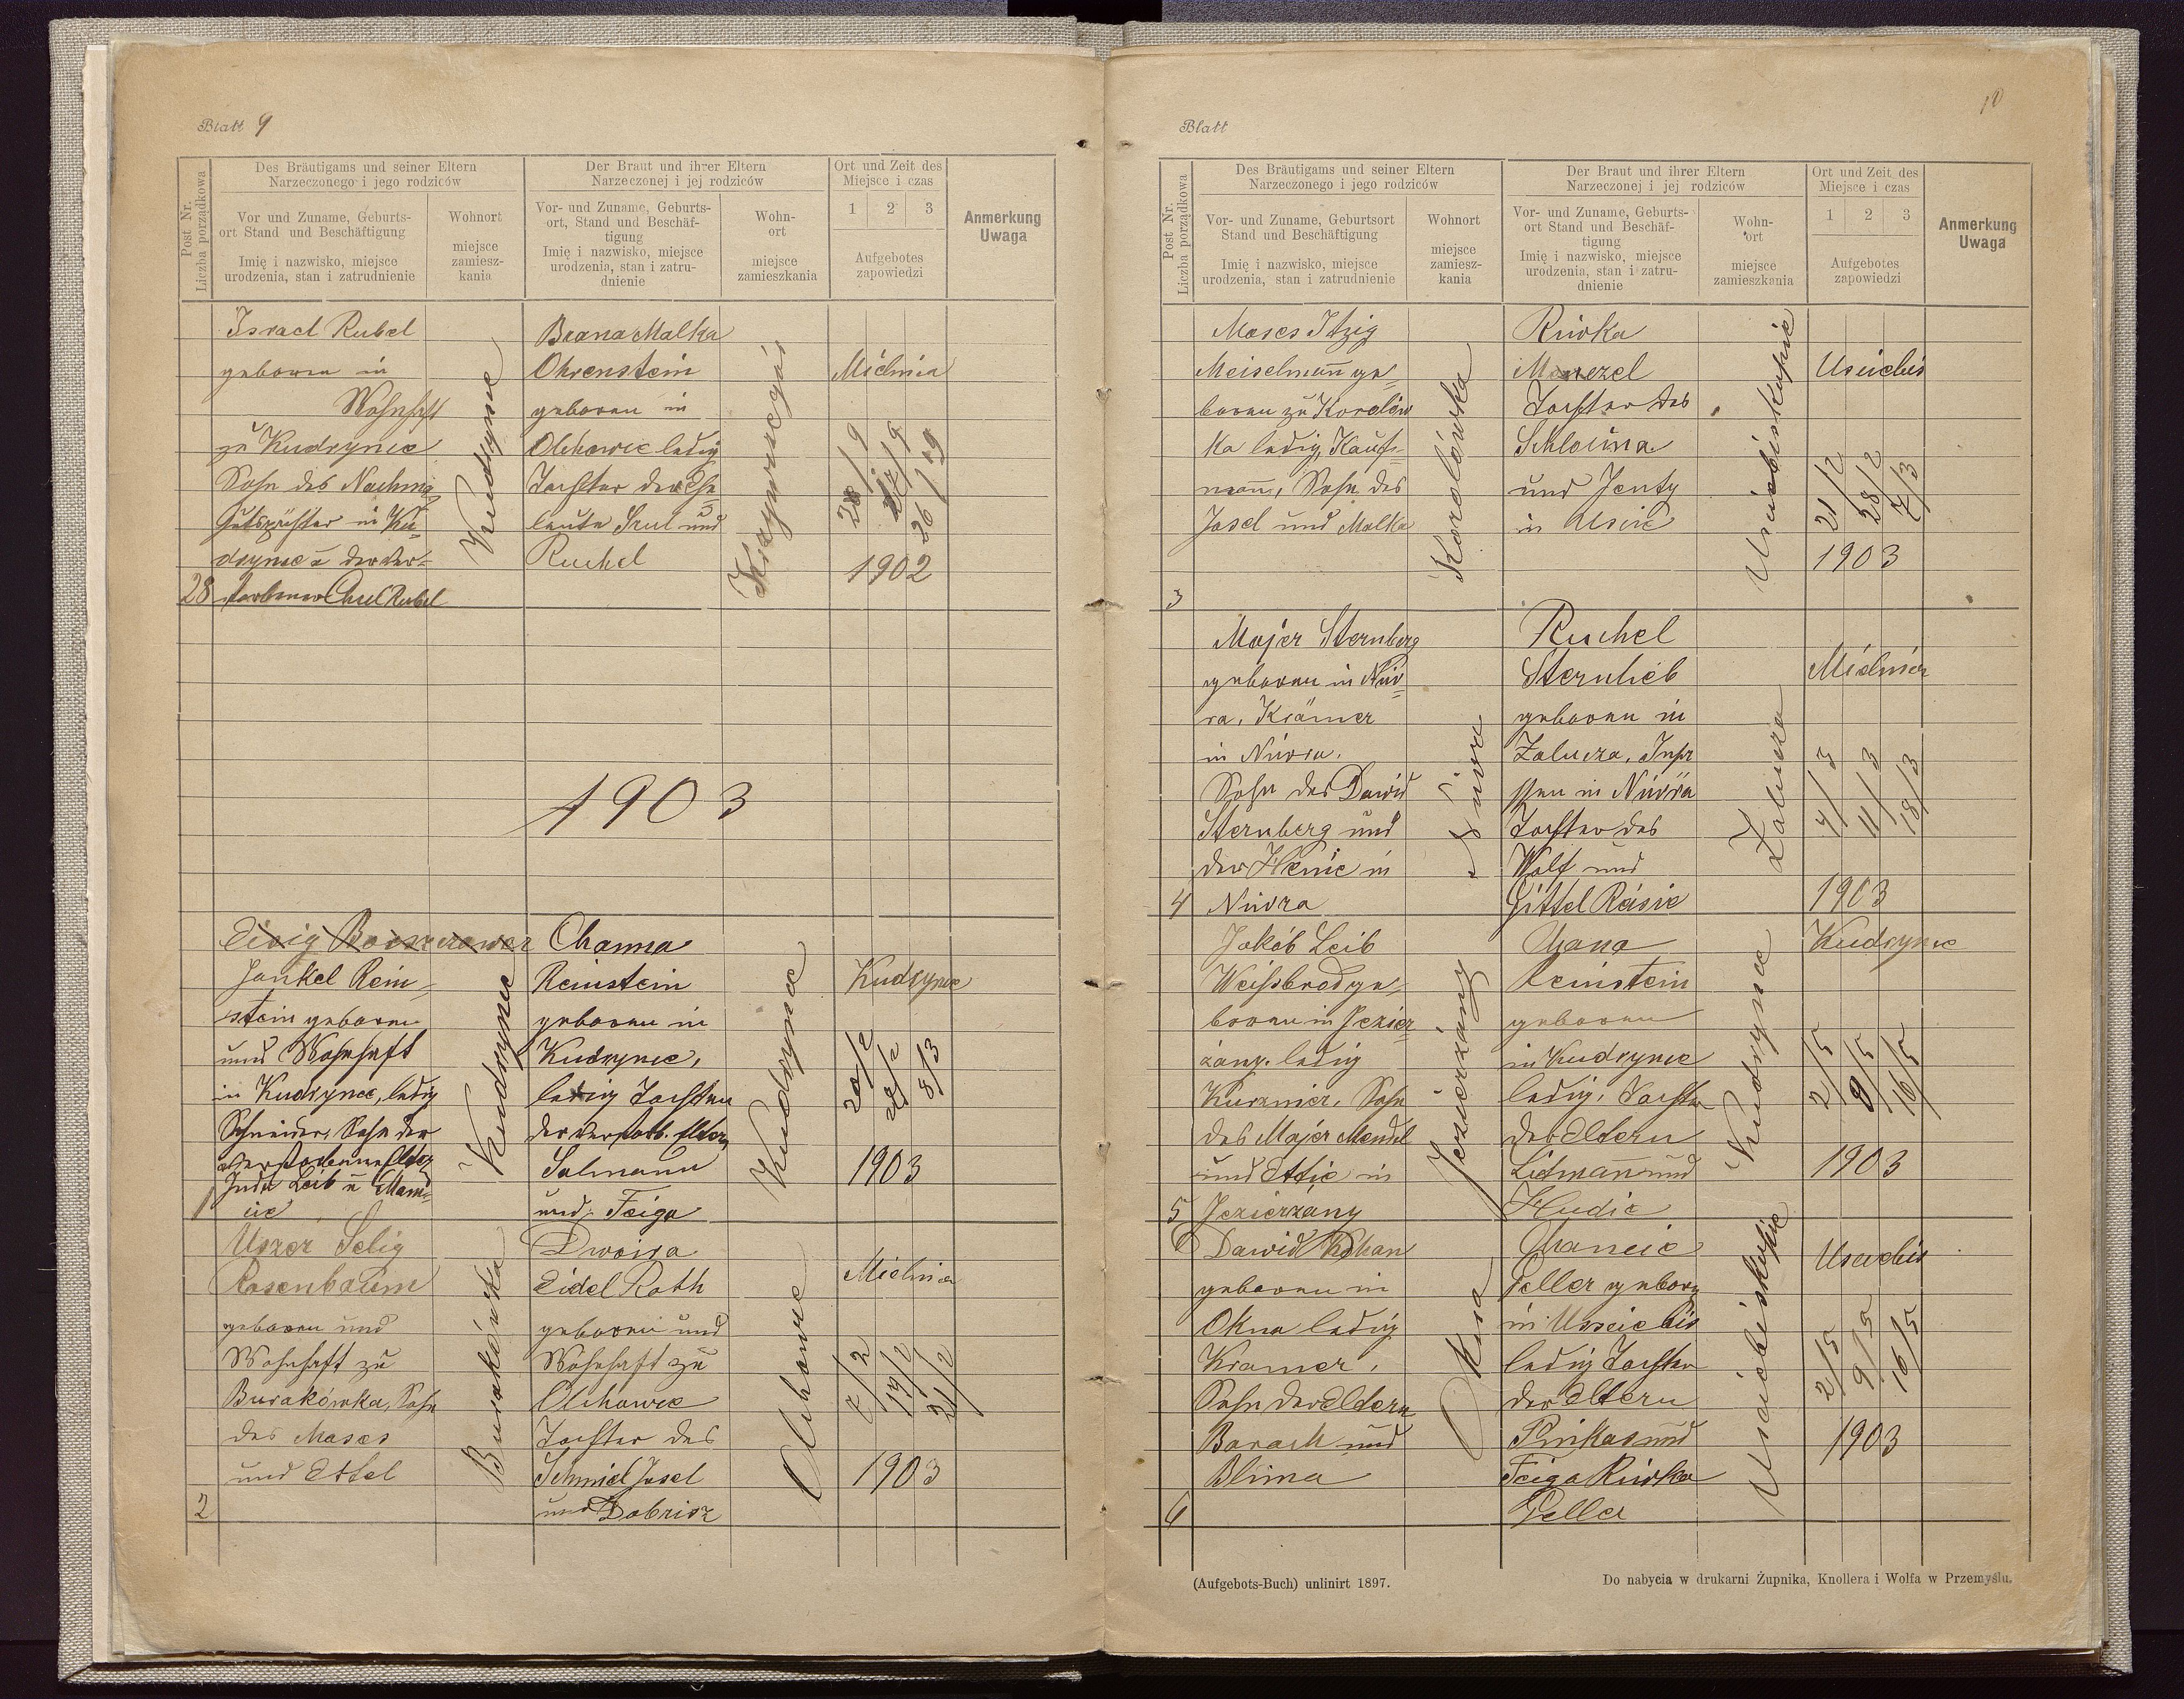 Blatt 9
Post Nr.
Liczba porządkowa
Des Bräutigams und seiner Eltern
Narzeczonego i jego rodziców
Vor und Zuname, Geburts-
ort Stand und Beschäftigung
Imię i nazwisko, miejsce
urodzenia, stan i zatrudnienie
Wohnort
miejsce
zamiesz-
kania
Der Braut und ihrer Eltern
Narzeczonej i jej rodziców
Vor- und Zuname, Geburts-
ort, Stand und Beschäf-
tigung
Imię i nazwisko, miejsce
urodzenia, stan i zatru-
dnienie
Wohn-
ort
miejsce
zamieszkania
Ort und Zeit des
Miejsce i czas
1 2 3
Aufgebotes
zapowiedzi
Anmerkung
Uwaga
Israel Rubel
geboren in
Wohnhaft
zu Kudrynce
Sohn des Nachma
Gutspächter in Ku-
drynce u der ver-
28 storbenen Rubel
Kudrynce
Brana Malka
Ohrenstein
geboren in
Olchowce ledig
Tochter der Ehe
leute Srul und
Ruchel
Mielnica
28/9
26/9
1902
1903
Eisig Borszczower
Jankel Rein-
stein geboren
und Wohnhaft
in Kudrynce, ledig
Schneider, Sohn der
verstorbenen Eltern
Juda Leib u Mani-
1 cie
Kudrynce
Channa
Reinstein
geboren in
Kudrynce,
ledig Tochter
der verstorb. Eltern
Salmann
und Feiga
Kudrynce
Kudrynce
20/2
28/2
8/3
1903
Uszer Selig
Rosenbaum
geboren und
Wohnhaft zu
Burakówka, Sohn
des Moses
und Ettel
2
Burakówka
Dwoira
Eidel Roth
geboren und
Wohnhaft zu
Olchowce
Tochter des
Schmiel Josel
und Dobrisz
Olchowce
Mielnica
7/2
14/2
21/2
1903
10
Blatt
Post Nr.
Liczba porządkowa
Des Bräutigams und seiner Eltern
Narzeczonego i jego rodziców
Vor und Zuname, Geburtsort
Stand und Beschäftigung
Imię i nazwisko, miejsce
urodzenia, stan i zatrudnienie
Wohnort
miejsce
zamiesz-
kania
Der Braut und ihrer Eltern
Narzeczonej i jej rodziców
Vor- und Zuname, Geburts-
ort Stand und Beschäf-
tigung
Imię i nazwisko, miejsce
urodzenia, stan i zatru-
dnienie
Wohn-
ort
miejsce
zamieszkania
Ort und Zeit des
Miejsce i czas
1 2 3
Aufgebotes
zapowiedzi
Anmerkung
Uwaga
Moses Itzig
Meiselmann ge-
boren zu Korolów
ka ledig, Kauf-
mann, Sohn des
Josel und Malka
3
Korolówka
Riwka
Tochter des
Schloima
und Jenty
in Uscie
Usciebiskupie
Usciebis
21/2
28/2
7/3
1903
Majer Sternberg
geboren in Niw-
ra, Krämer
in Niwra.
Sohn des Dawid
Sternberg und
der Henie in
4 Niwra
Niwra
Ruchel
Sternlieb
geboren in
Zalucza,
in Niwra
Tochter des
Wolf und
Gittel Reisie
Zalucza
Mielnica
4/3
11/3
18/3
1903
Jakób Leib
Weissbrod ge-
boren in Jezier-
zany. ledig
Kürschner, Sohn
des Majer Mendel
und Ettie in
5 Jezierzany
Jezierzany
Chana
Reinstein
geboren
in Kudrynce
ledig, Tochter
der Eltern
Lidmann und
Hudie
Kudrynce
Kudrynce
2/5
9/5
16/5
1903
6 Dawid Kohan
geboren in
Okna ledig
Kramer,
Sohn der Eltern
Barach und
Blima
6
Okna
Chancie
Peller geboren
in Usciebis
ledig Tochter
der Eltern
Pinkas und
Feiga Riwka
Peller
Usciebiskupie
Usciebis
2/5
9/5
16/5
1903
(Aufgebots-Buch) unlinirt 1897.
Do nabycia w drukarni Żupnika, Knollera i Wolfa w Przemyślu.